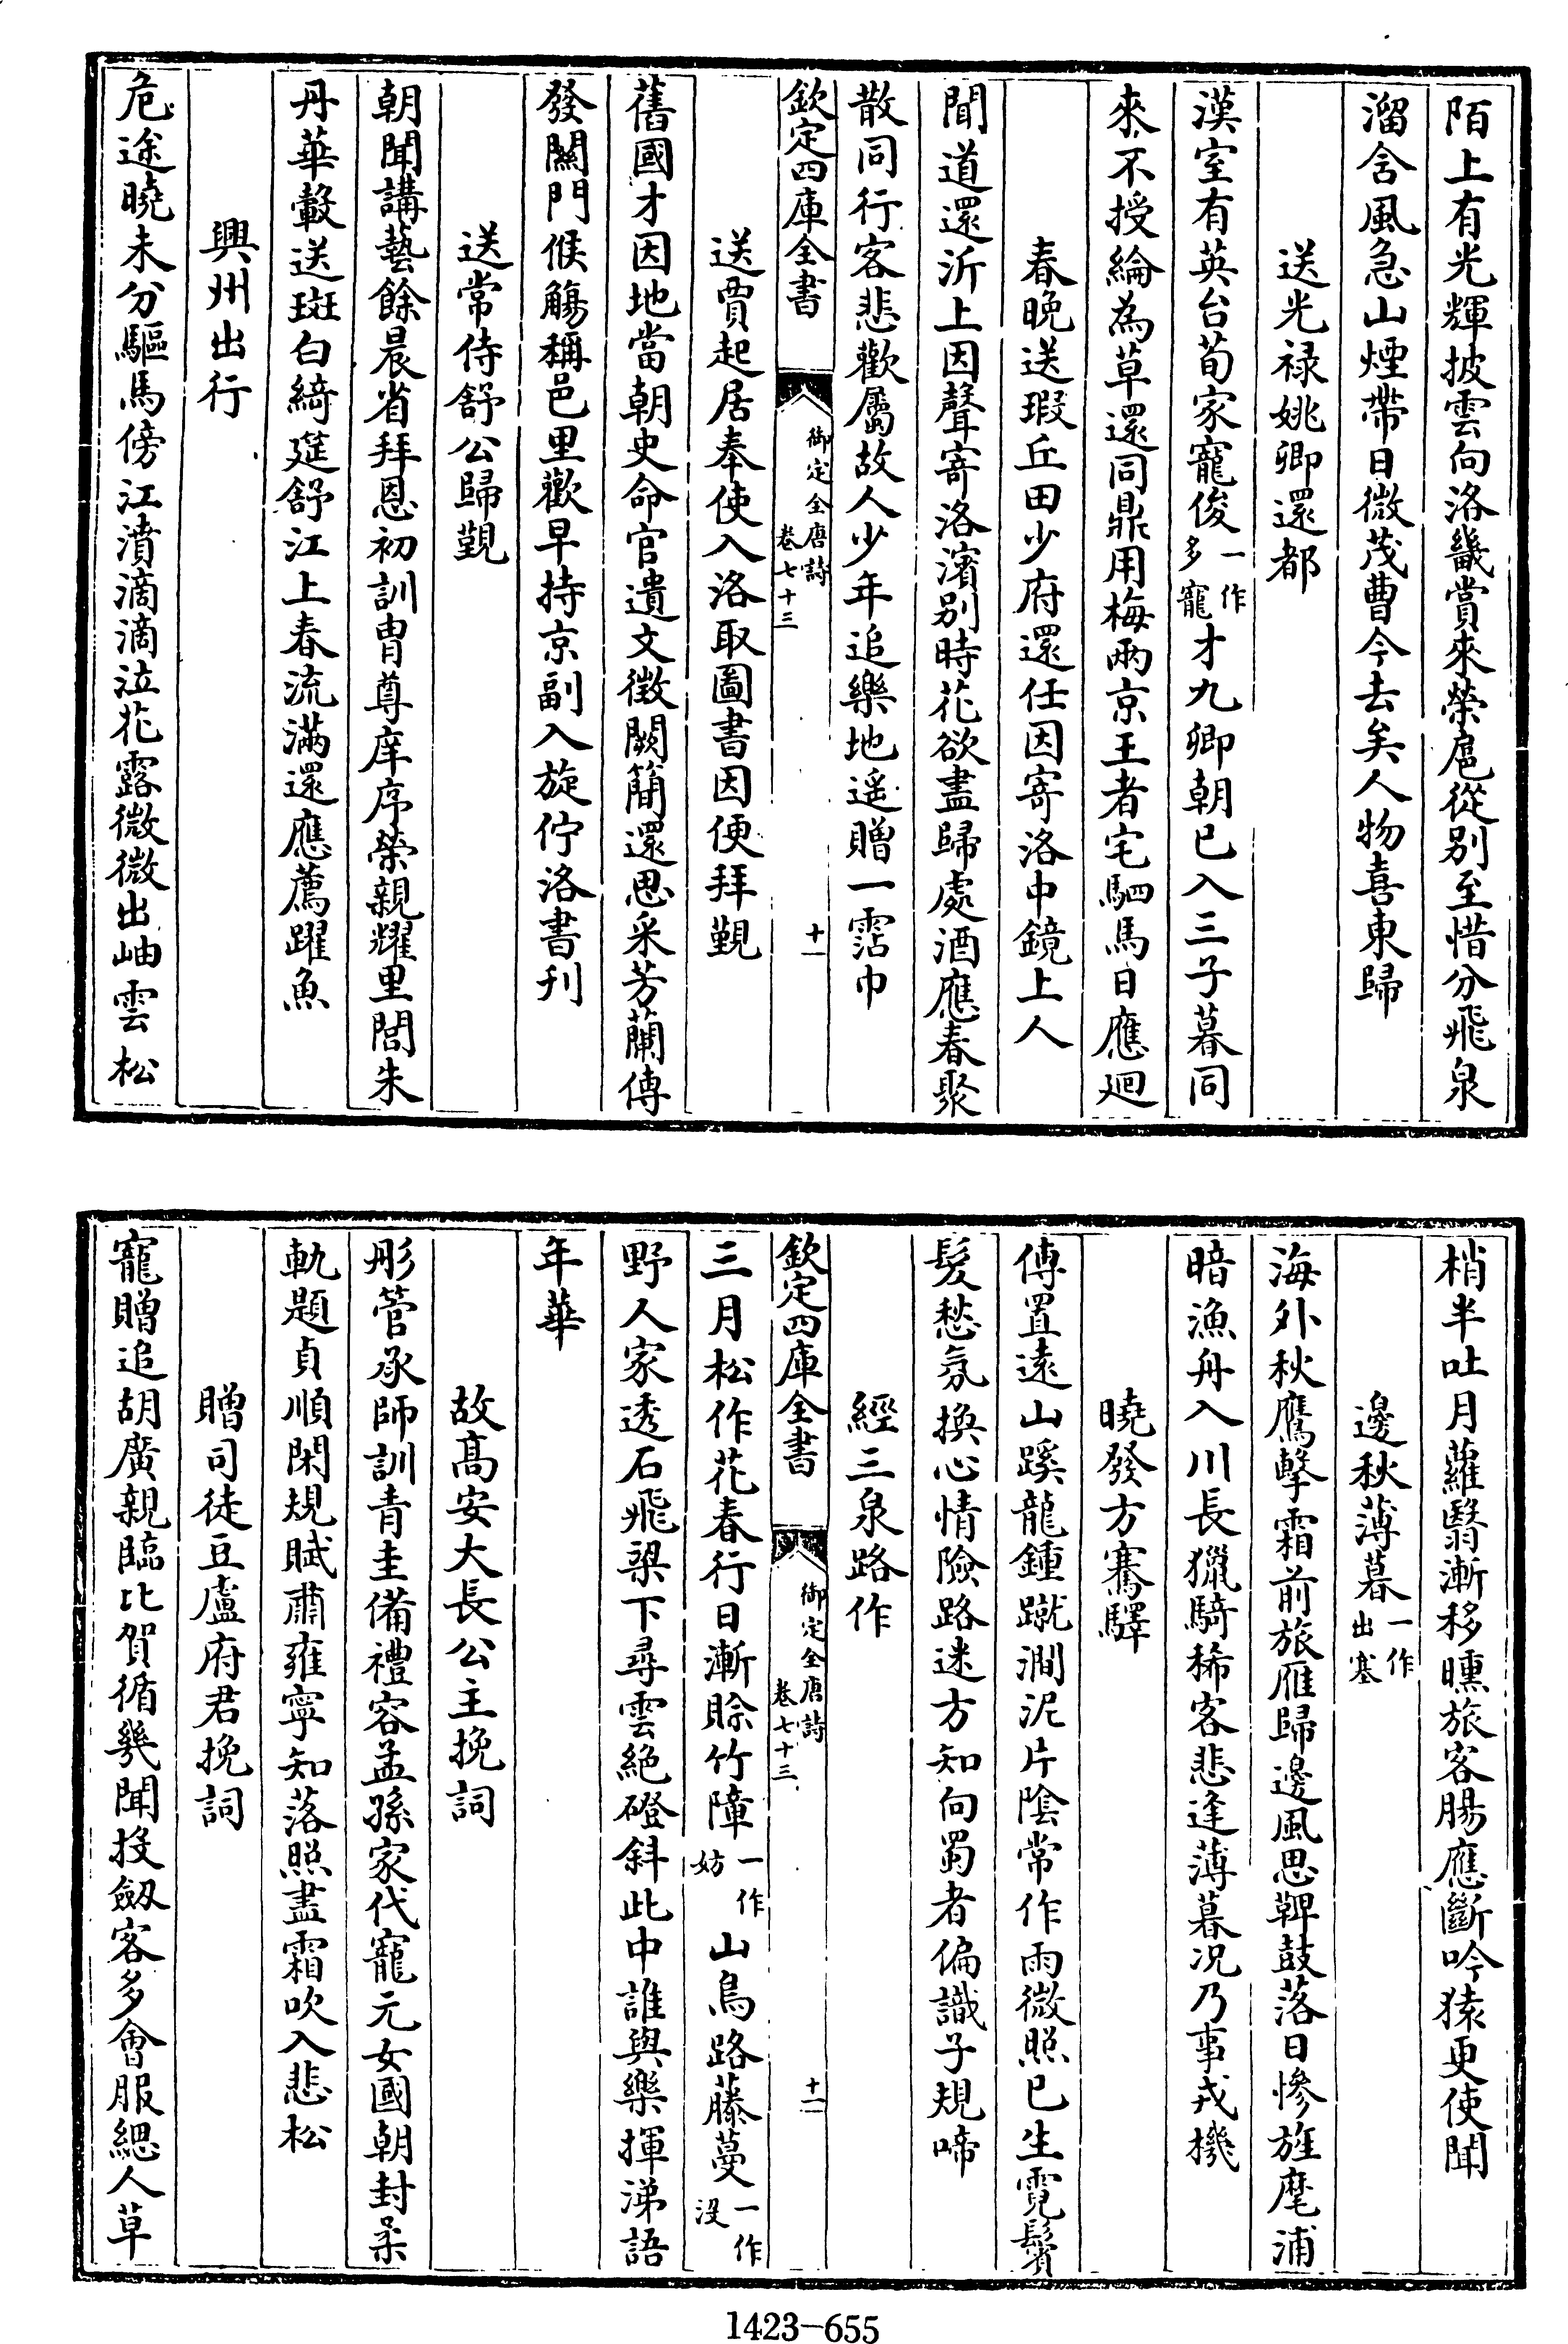 陌上有光輝披雲向洛畿賞來榮扈從别至惜分飛泉
溜含風急山煙帶日微茂曹今去矣人物喜東歸
送光禄姚卿還都
漢室有英台荀家寵俊一作多寵才九卿朝已入三子暮同
來不授綸為草還同鼎用梅兩京王者宅駟馬日應廻
春晚送瑕丘田少府還任因寄洛中鏡上人
聞道還沂上因聲寄洛濱别時花欲盡歸處酒應春聚
散同行客悲歡屬故人少年追樂地遥贈一霑巾
欽定四庫全書 御定全唐詩卷七十三 十一
送賈起居奉使入洛取圖書因便拜覲
舊國才因地當朝史命官遺文徵闕簡還思采芳蘭傳
發關門候觴稱邑里歡早持京副入旋佇洛書刋
送常侍舒公歸覲
朝聞講藝餘晨省拜恩初訓冑尊庠序榮親耀里閭朱
丹華轂送斑白綺筵舒江上春流滿還應薦躍魚
興州出行
危途曉未分驅馬傍江濆滴滴泣花露微微出岫雲松
梢半吐月蘿翳漸移曛旅客腸應斷吟猿更使聞
邊秋薄暮一作出塞
海外秋鷹擊霜前旅雁歸邊風思鞞鼓落日慘旌麾浦
暗漁舟入川長獵騎稀客悲逢薄暮况乃事戎機
曉發方騫驛
傳置遠山蹊龍鍾蹴澗泥片陰常作雨微照已生霓鬢
髮愁氛換心情險路迷方知向蜀者偏識子規啼
經三泉路作
欽定四庫全書 御定全唐詩卷七十三 十二
三月松作花春行日漸賒竹障一作妨山鳥路藤蔓一作沒
野人家透石飛梁下尋雲絶磴斜此中誰與樂揮涕語
年華
故髙安大長公主挽詞
彤管承師訓青圭備禮容孟孫家代寵元女國朝封柔
軌題貞順閑規賦肅雍寧知落照盡霜吹入悲松
贈司徒豆盧府君挽詞
寵贈追胡廣親臨比賀循幾聞投劔客多會服緦人草
1423-655